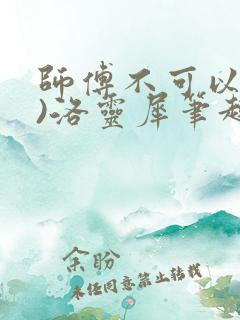 師傅不可以
)洛靈犀筆趣
余盼
未經同意禁止转载